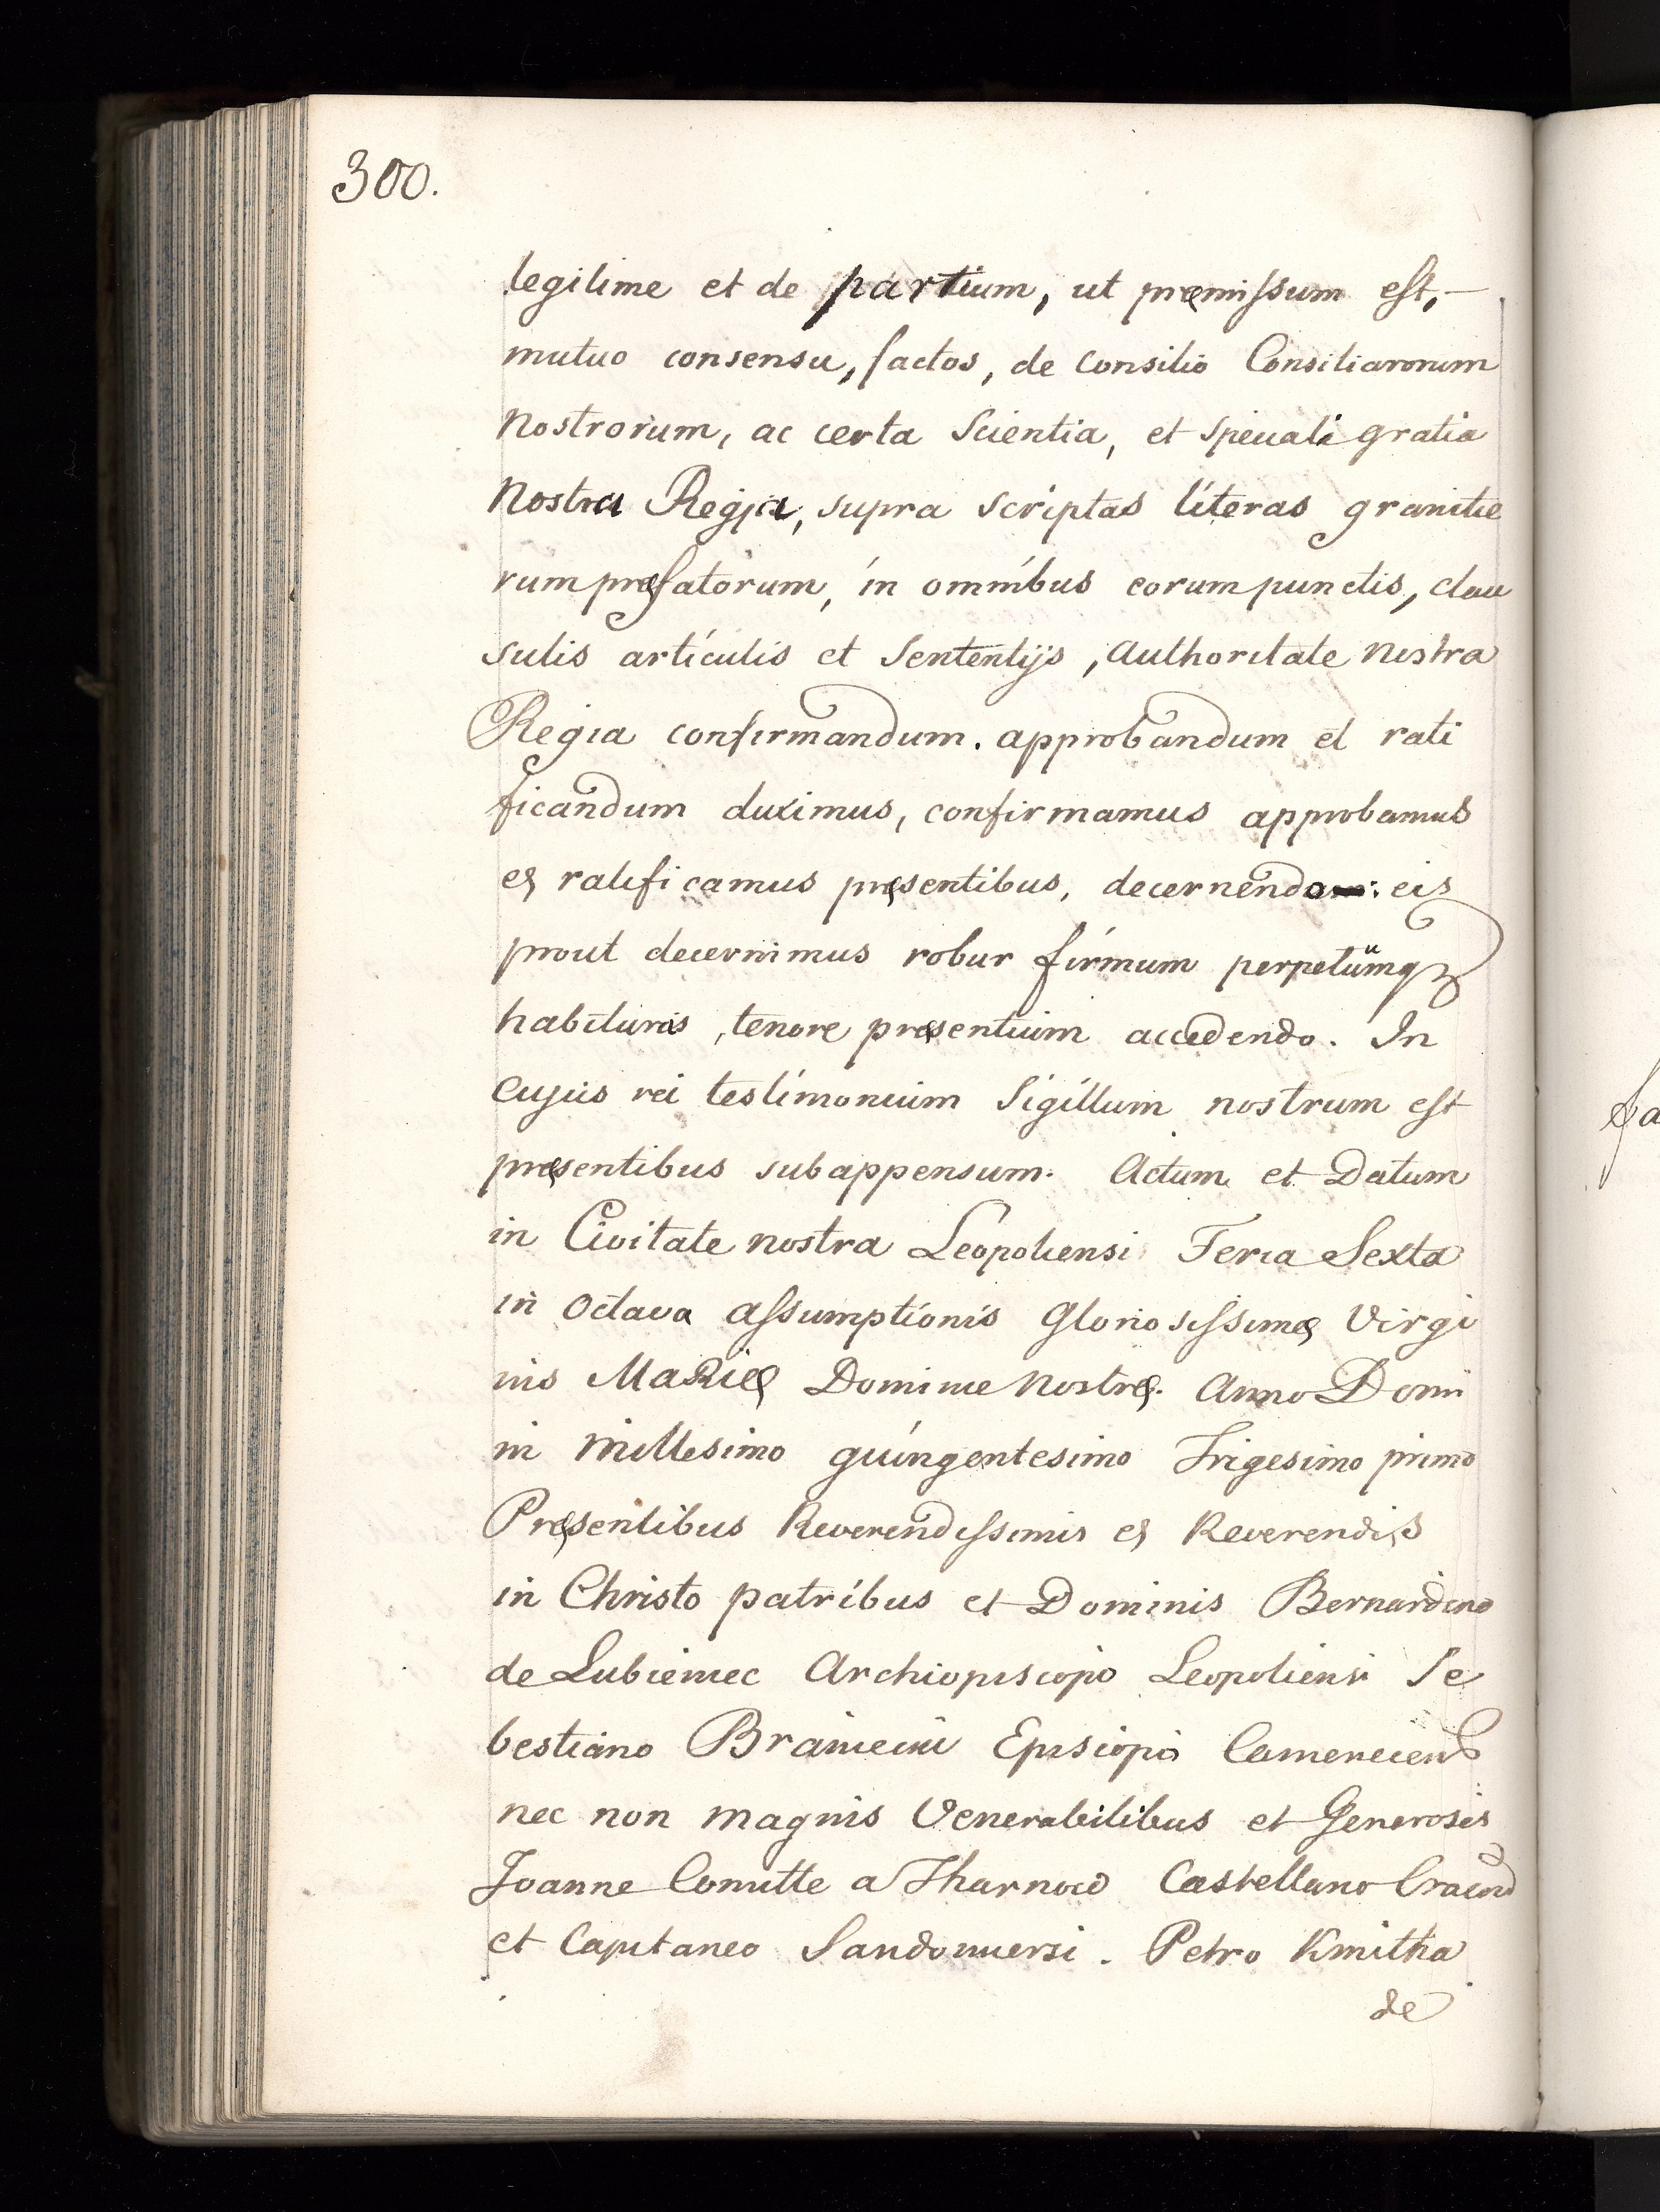 300.
legitime et de partium, ut pręmissum est,—
mutuo consensu, factos, de consilio Consiliarorum
Nostrorum, ac certa Scientia, et speciali gratia
Nostra Regia, supra scriptas literas granitie
rum pręfatorum, in omnibus eorum punctis, clau
sulis articulis et Sententijs, Authoritate nostra
Regia confirmandum. approbandum et rati
ficandum duximus, confirmamus approbamus
et ratificamus pręsentibus, decernendo eis
prout decernimus robur firmum perpetuumq3
habituris, tenore pręsentium accedendo. In
cujus rei testimonium Sigillum nostrum est
pręsentibus subappensum. Actum et Datum
in Civitate nostra Leopoliensi Feria Sexta
in octava assumptionis Gloriosissimę Virgi
nis Marię Dominie Nostrę. Anno Domi
ni millesimo quingentesimo Trigesimo primo
Pręsentibus Reverendissimis et Reverendis
in Christo patribus et Dominis Bernardino
de Lubiemec Archiopiscopo Leopoliensi Se
bestiano Braniecini Episcopo Camenecens
nec non magnis Venerabilibus et Generosis
Joanne Comitte a Tharnow Castellano Cracovi
et Capitaneo Sandomiersi. Petro Kmitha
de